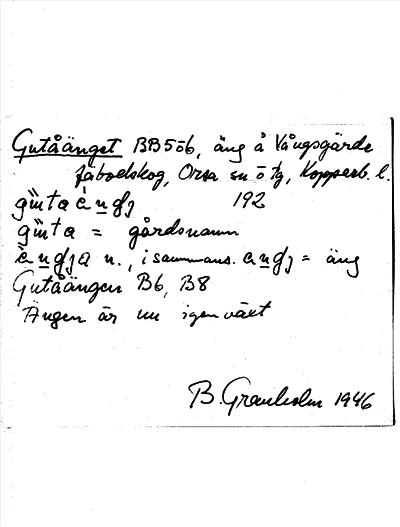 Gutåänget BB5öb, äng å Vångsgärde
fäbodskog, Orsa sn ö tg, Kopparb. l.
192
= gårdsnamn
n., i sammans. = äng
Gutåängen B6, B8
Ängen är nu igenväxt
B. Granholm 1946